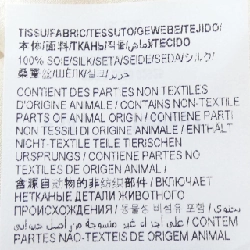 TISSU/FABRIC/TESSUTO/GEWEBE/TEJIDO/
本体/面料/ТКАНЬ/직물/قماش/TECIDO
100% SOIE/SILK/SETA/SEIDE/SEDA/シルク/
桑蚕丝/ШЁЛК/실크/حرير
CONTIENT DES PARTIES NON TEXTILES
D'ORIGINE ANIMALE / CONTAINS NON-TEXTILE
PARTS OF ANIMAL ORIGIN / CONTIENE PARTI
NON TESSILI DI ORIGINE ANIMALE / ENTHÄLT
NICHT-TEXTILE TEILE TIERISCHEN
URSPRUNGS / CONTIENE PARTES NO
TEXTILES DE ORIGEN ANIMAL /
含源自动物的非纺织部件 / ВКЛЮЧАЕТ
НЕТКАНЫЕ ДЕТАЛИ ЖИВОТНОГО
ПРОИСХОЖДЕНИЯ / 동물성 비섬유 포함 /
يحتوي على أجزاء غير منسوجة من أصل حيواني / CONTÉM
PARTES NÃO-TEXTEIS DE ORIGEM ANIMAL